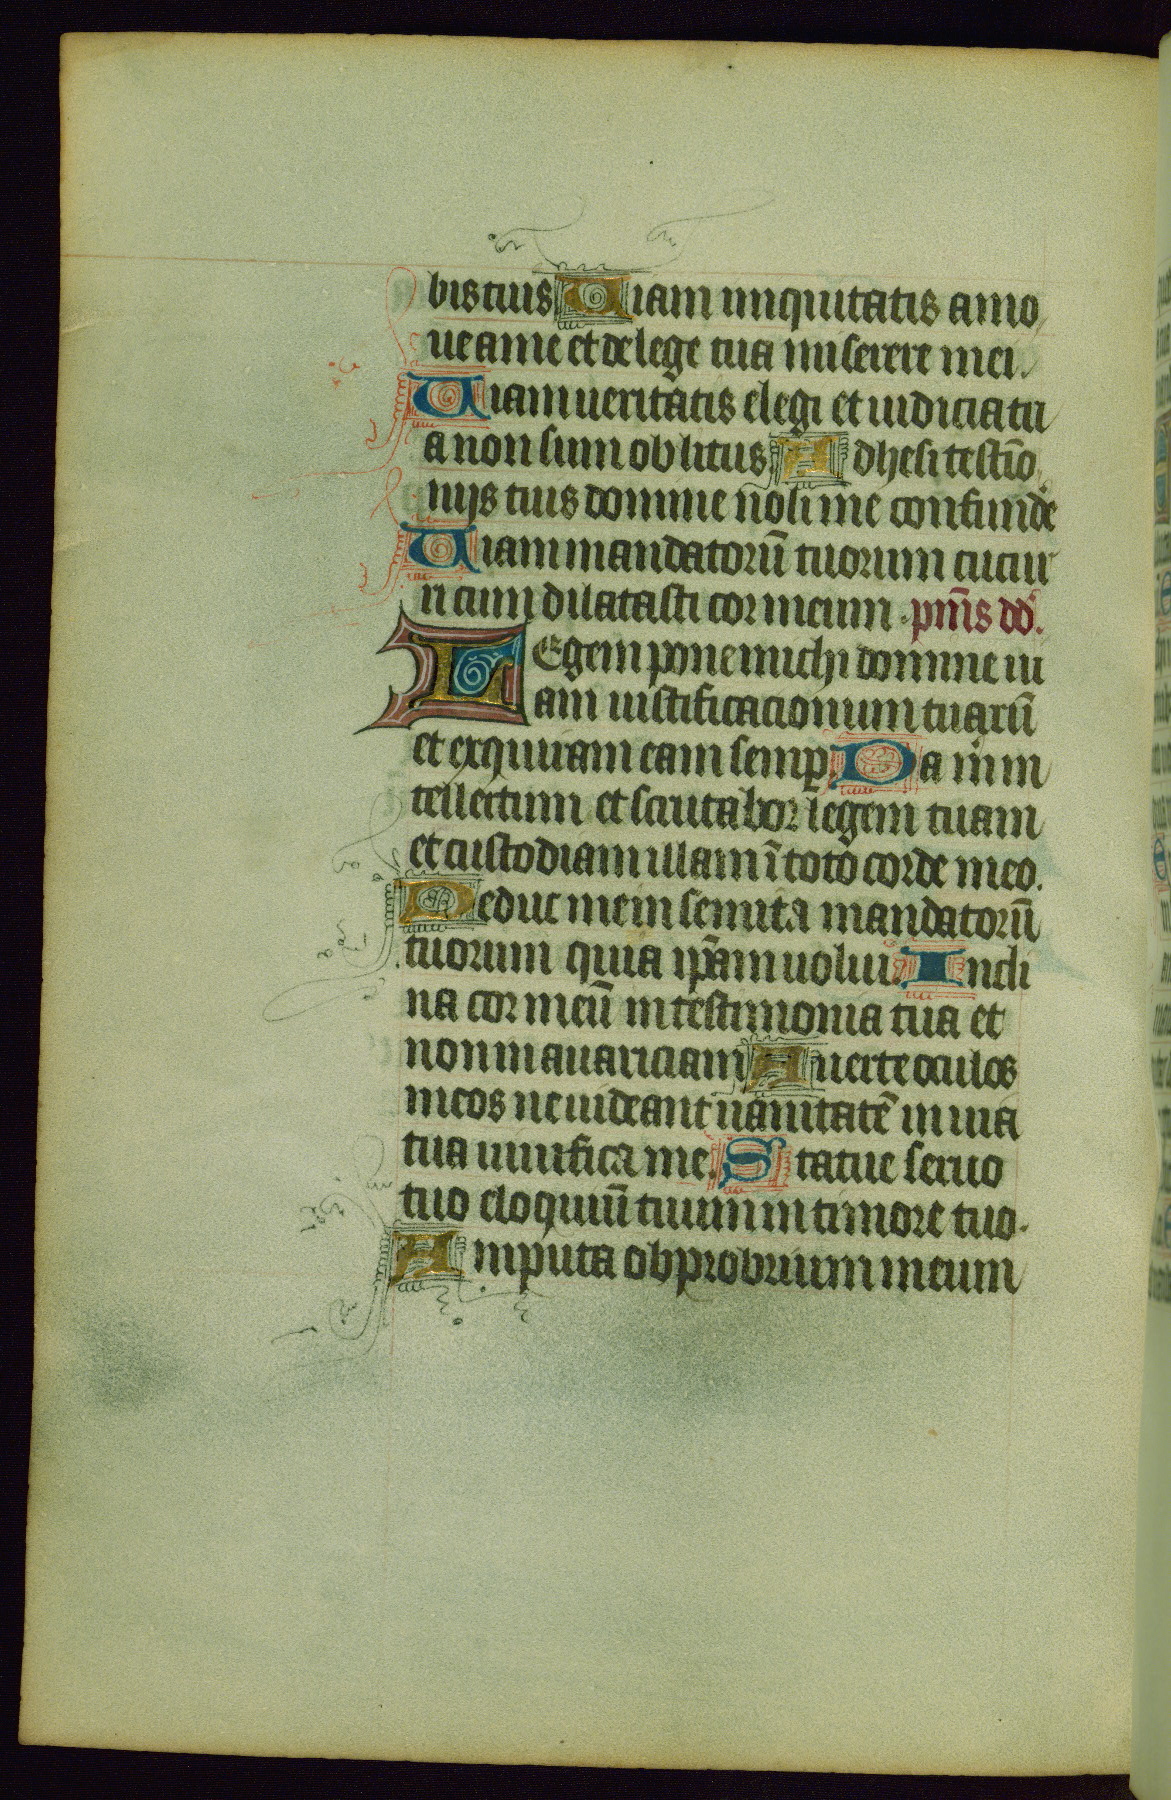 bis tuis Uiam iniquitatis amo
ue a me et de lege tua miserere mei.
Uiam ueritatis elegi et iudicia tu
a non sum oblitus. Adhesi testīo
nijs tuis domine noli me confunde
Uiam mandatorū tuorum cucur
ri cum dilatasti cor meum. pm̄s dd.
LEgem pone michi domine ui
am iustificacionum tuarū
et exquiram eam semp. Da m in
tellectum et scrutabor legem tuam
et custodiam illam ī toto corde meo.
Deduc me in semita mandatorū
tuorum quia ip̄am uolui. Incli
na cor meū in testimonia tua et
non in auariciam Auerte oculos
meos ne uideant uanitatē in uia
tua uiuifica me. Statue seruo
tuo eloquiū tuum in timore tuo.
Amputa obprobrium meum